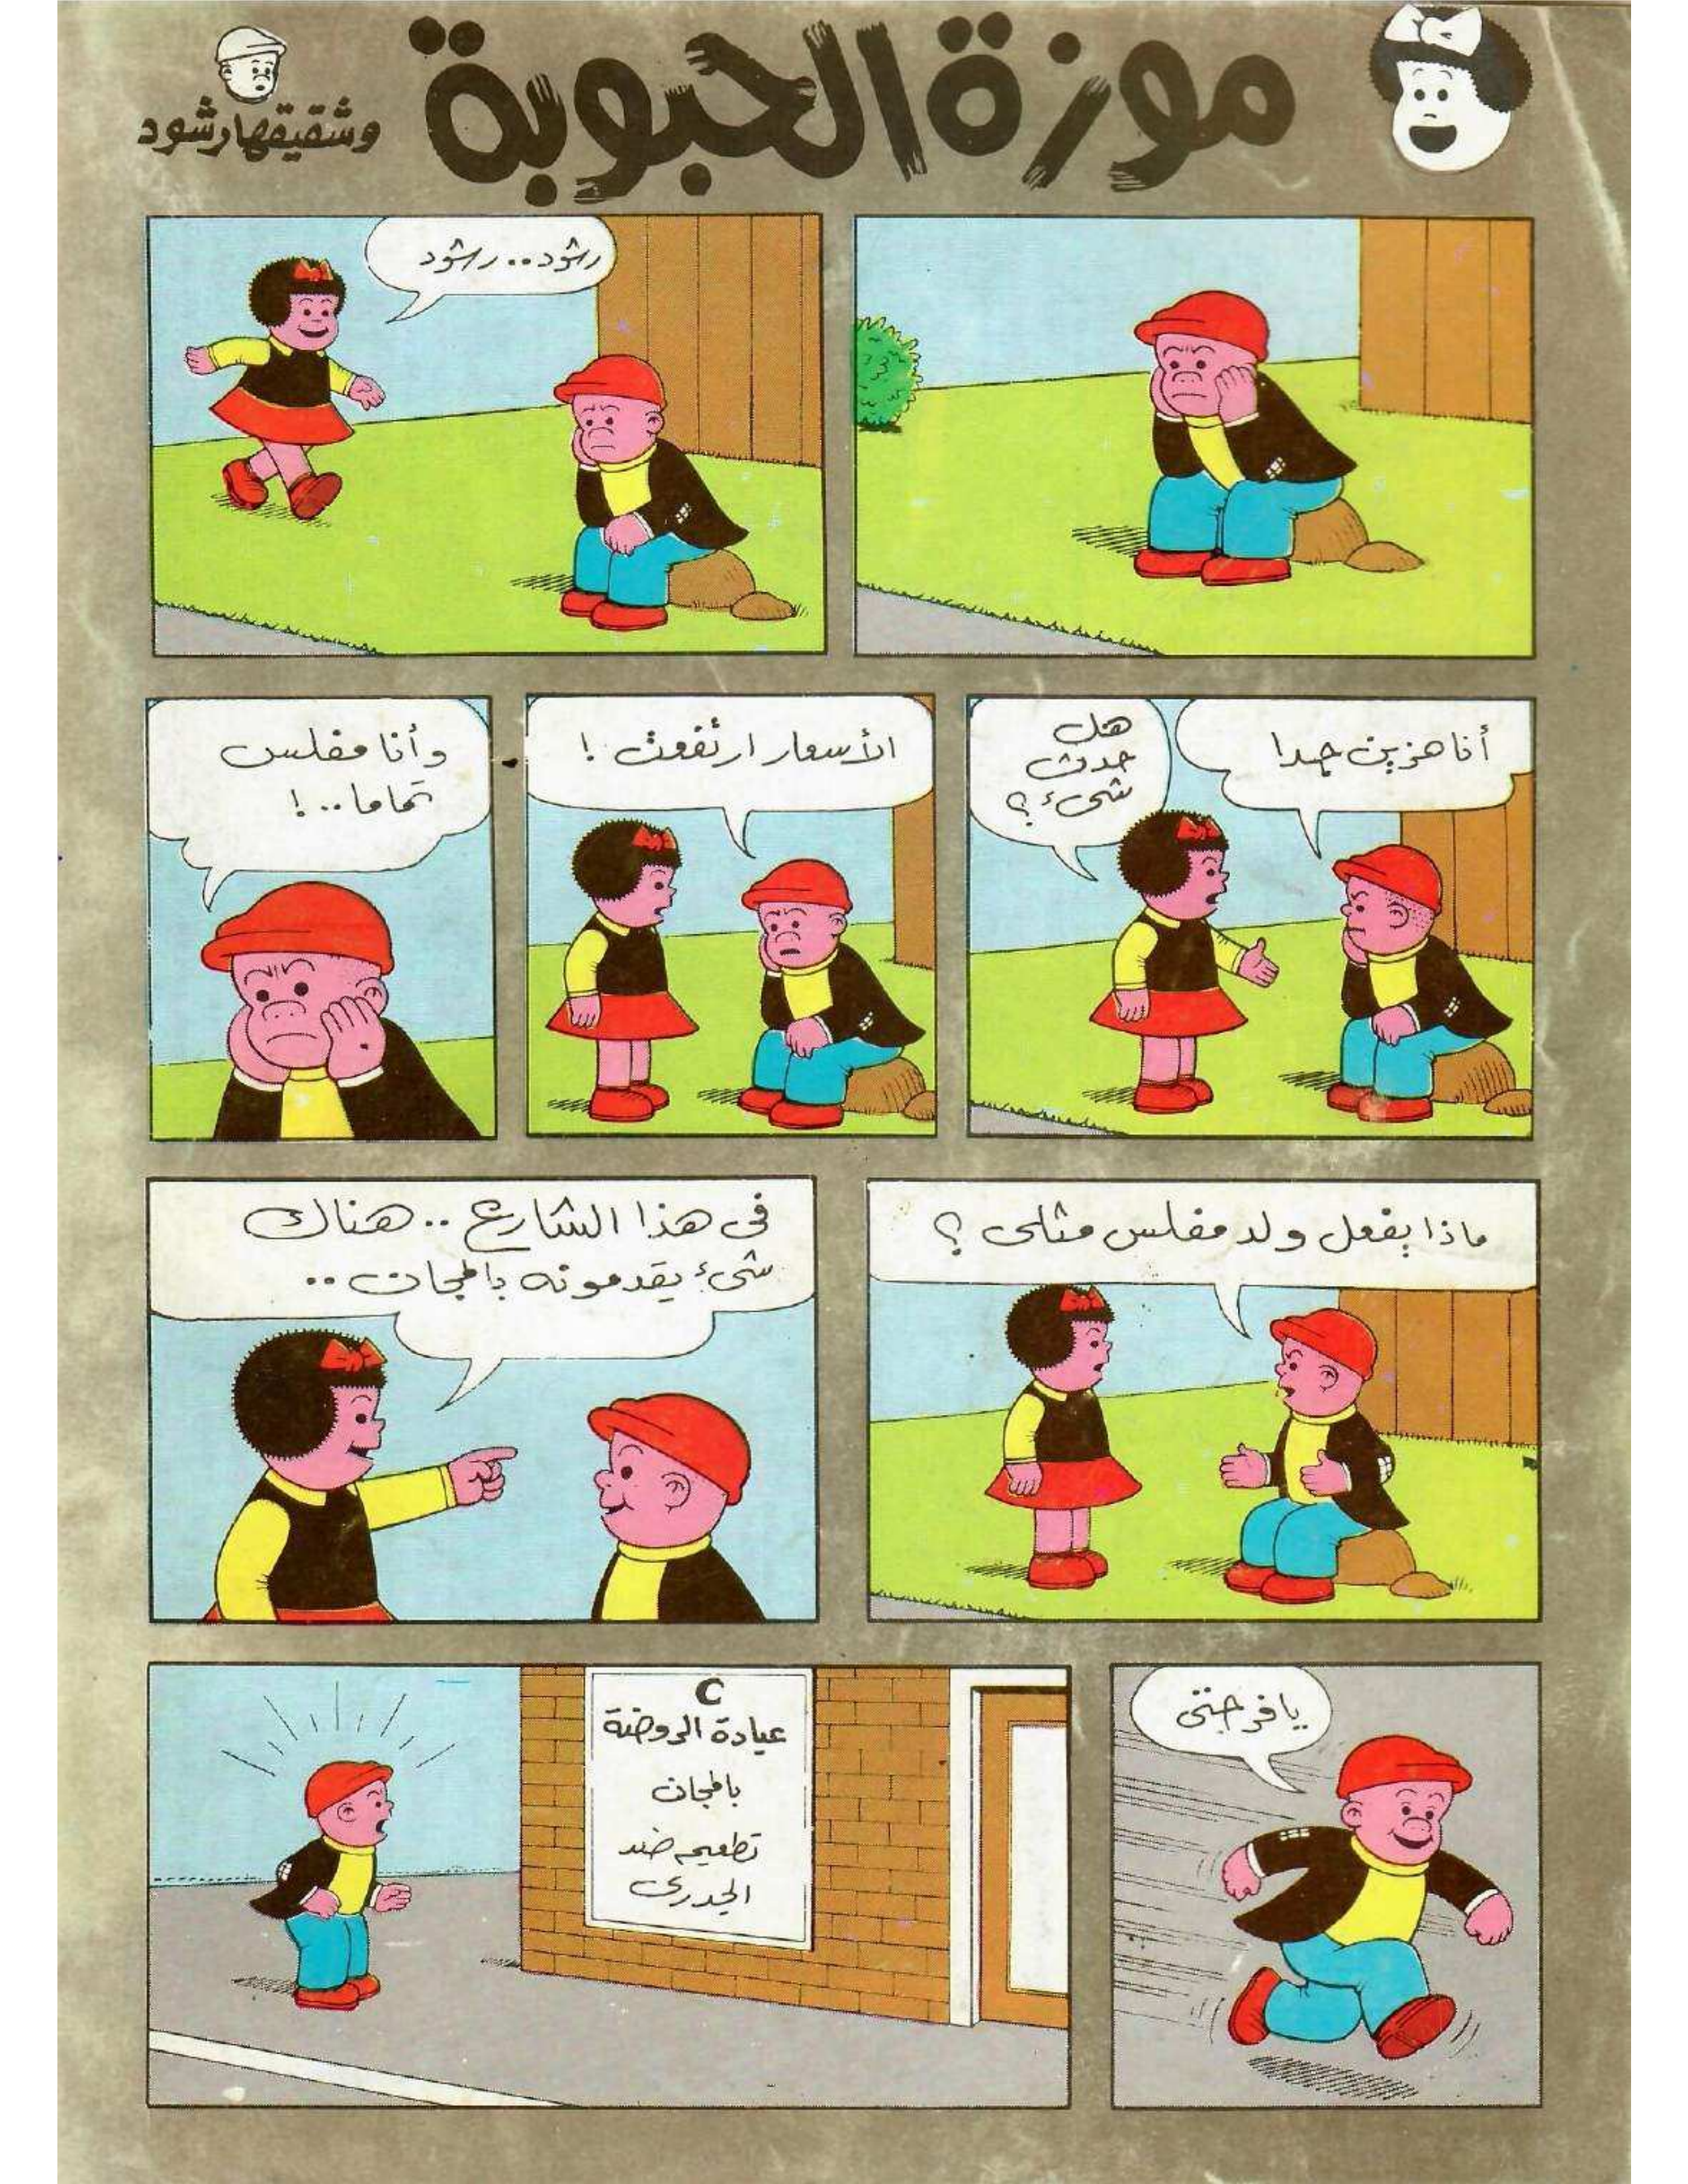 موزة الحبوبة
وشقيقها رشود
رشود.. رشود
هل
حدث
شىء؟
أنا حزين جدا
الأسعار ارتفعت !
وأنا مفلس
تماما.. !
ماذا يفعل ولد مفلس مثلى ؟
فى هذا الشارع .. هناك
شىء يقدمونه بالمجان ..
يا فرحتى
عيادة الروضة
بالمجان
تطعيم ضد
الجدرى